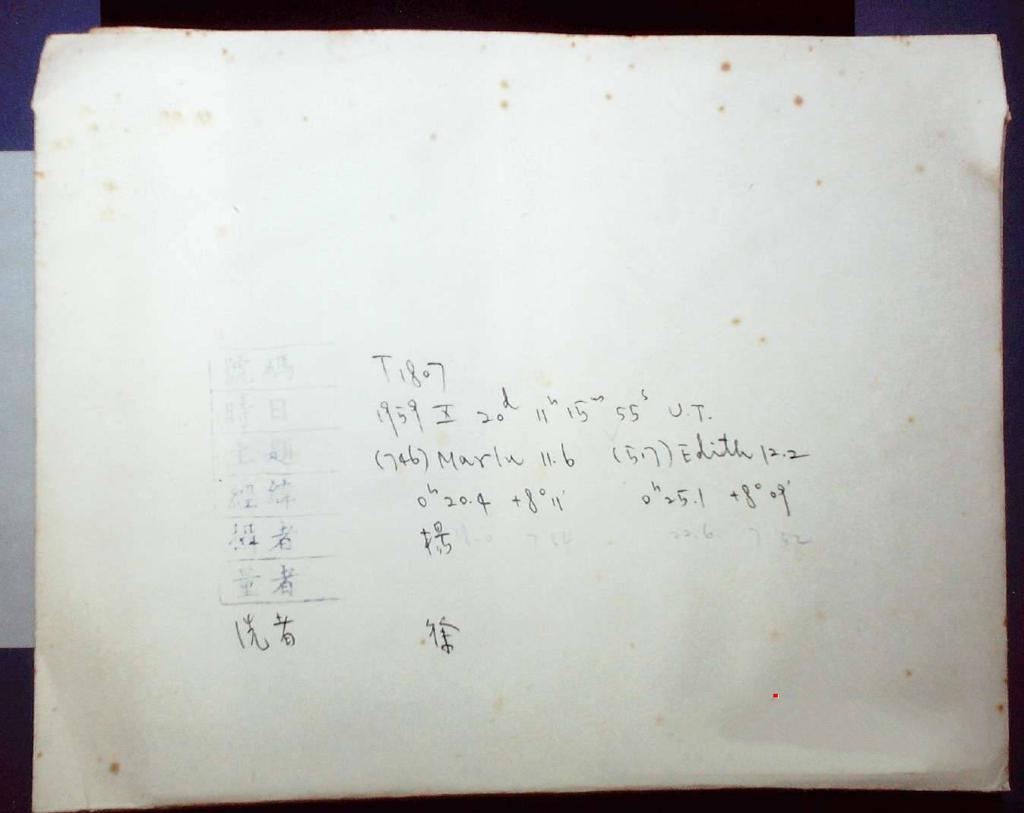 號碼 T1807
時日 1959 X 20d 11h 15m 55s U.T.
主題 (746) Marlu 11.6 (517) Edith 12.2
經緯 0h 20.4 +8° 11' 0h 25.1 +8° 09'
攝者 楊
量者
洗者 徐